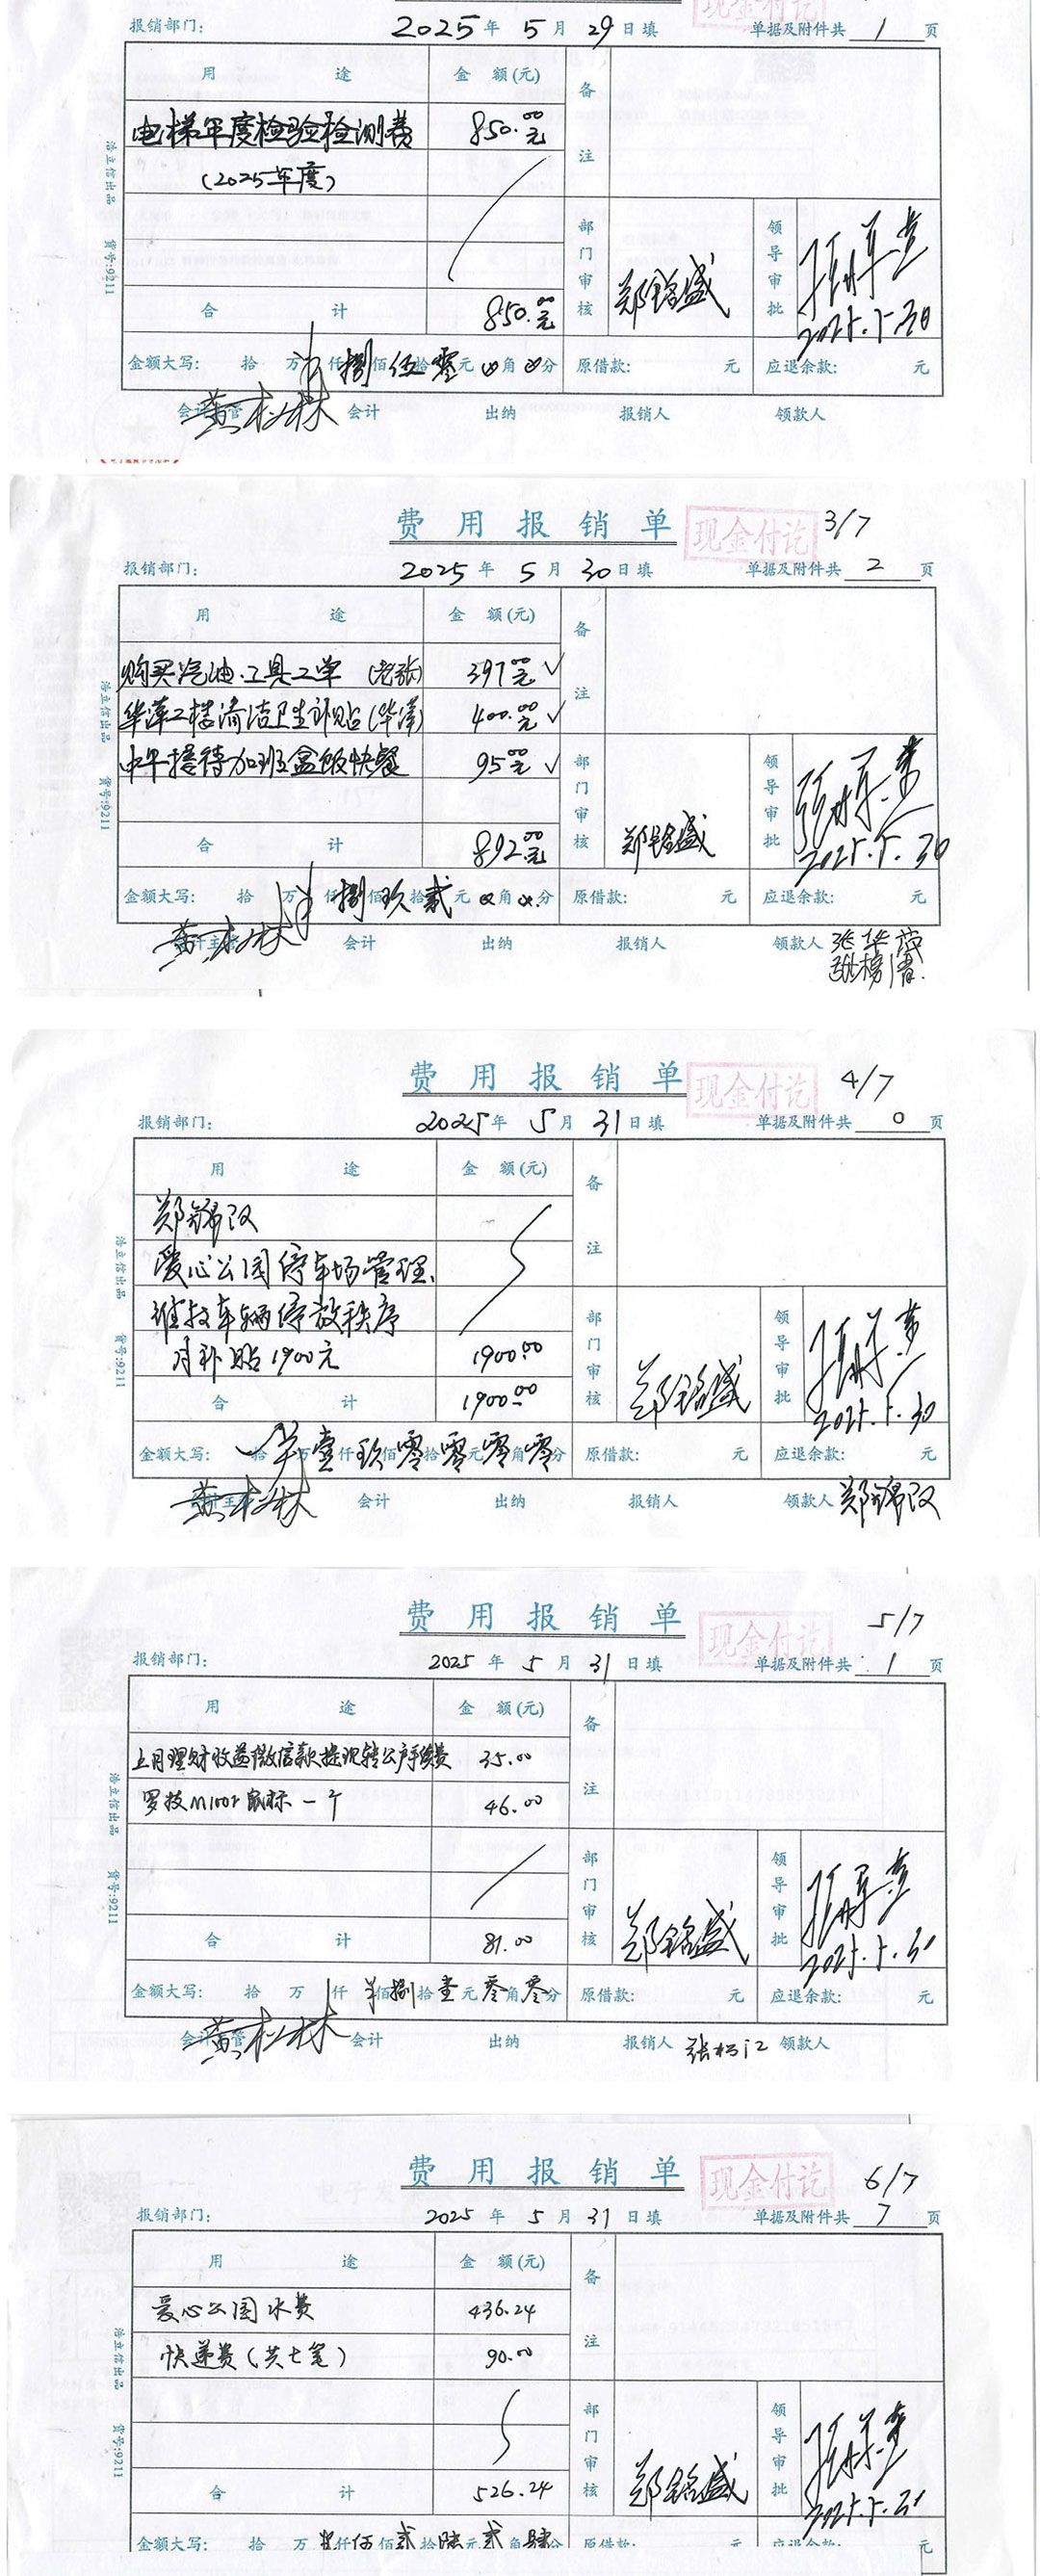 报销部门: 2025 年 5 月 29 日填 单据及附件共 1 页
用 途 金 额(元) 备注
电梯年度检验检测费 850.00元
(2025年度)
部门审核 郑铭盛 领导审批
合 计 850.00元
金额大写: 拾 万 仟 捌 佰 伍 拾 零 元 角 分 原借款: 元 应退余款: 元
会计主管 会计 出纳 报销人 领款人
浩立信出品 货号:9211
费 用 报 销 单 现金付讫 3/7
报销部门: 2025 年 5 月 30 日填 单据及附件共 2 页
用 途 金 额(元) 备注
购买汽油.工具工学 (老张) 397.00元 ✓
华萍工楼清洁卫生补贴(华萍) 400.00元 ✓
中午接待加班盒饭快餐 95.00元 ✓
部门审核 郑铭盛 领导审批
2025.5.30
合 计 892.00元
金额大写: 拾 万 仟 捌 佰 玖 拾 贰 元 角 分 原借款: 元 应退余款: 元
会计主管 会计 出纳 报销人 领款人
浩立信出品 货号:9211
费 用 报 销 单 现金付讫 4/7
报销部门: 2025 年 5 月 31 日填 单据及附件共 0 页
用 途 金 额(元) 备注
郑锦汉
爱心公园停车场管理、
维护车辆停放秩序
月补贴1900元 1900.00
部门审核 郑铭盛 领导审批
2025.5.30
合 计 1900.00
金额大写: 拾 万 壹 仟 玖 佰 零 拾 零 元 零 角 零 分 原借款: 元 应退余款: 元
会计主管 会计 出纳 报销人 领款人 郑锦汉
浩立信出品 货号:9211
费 用 报 销 单 现金付讫 5/7
报销部门: 2025 年 5 月 31 日填 单据及附件共 1 页
用 途 金 额(元) 备注
上月理财收益微信款提现转公户手续费 35.00
罗技M100r鼠标一个 46.00
部门审核 郑铭盛 领导审批
2025.5.31
合 计 81.00
金额大写: 拾 万 仟 佰 捌 拾 壹 元 零 角 零 分 原借款: 元 应退余款: 元
会计主管 会计 出纳 报销人 领款人
浩立信出品 货号:9211
费 用 报 销 单 现金付讫 6/7
报销部门: 2025 年 5 月 31 日填 单据及附件共 7 页
用 途 金 额(元) 备注
爱心公园水费 436.24
快递费(共七笔) 90.00
部门审核 郑铭盛 领导审批
2025.5.31
合 计 526.24
金额大写: 拾 万 仟 伍 佰 贰 拾 陆 元 贰 角 肆 分 原借款: 元 应退余款: 元
浩立信出品 货号:9211